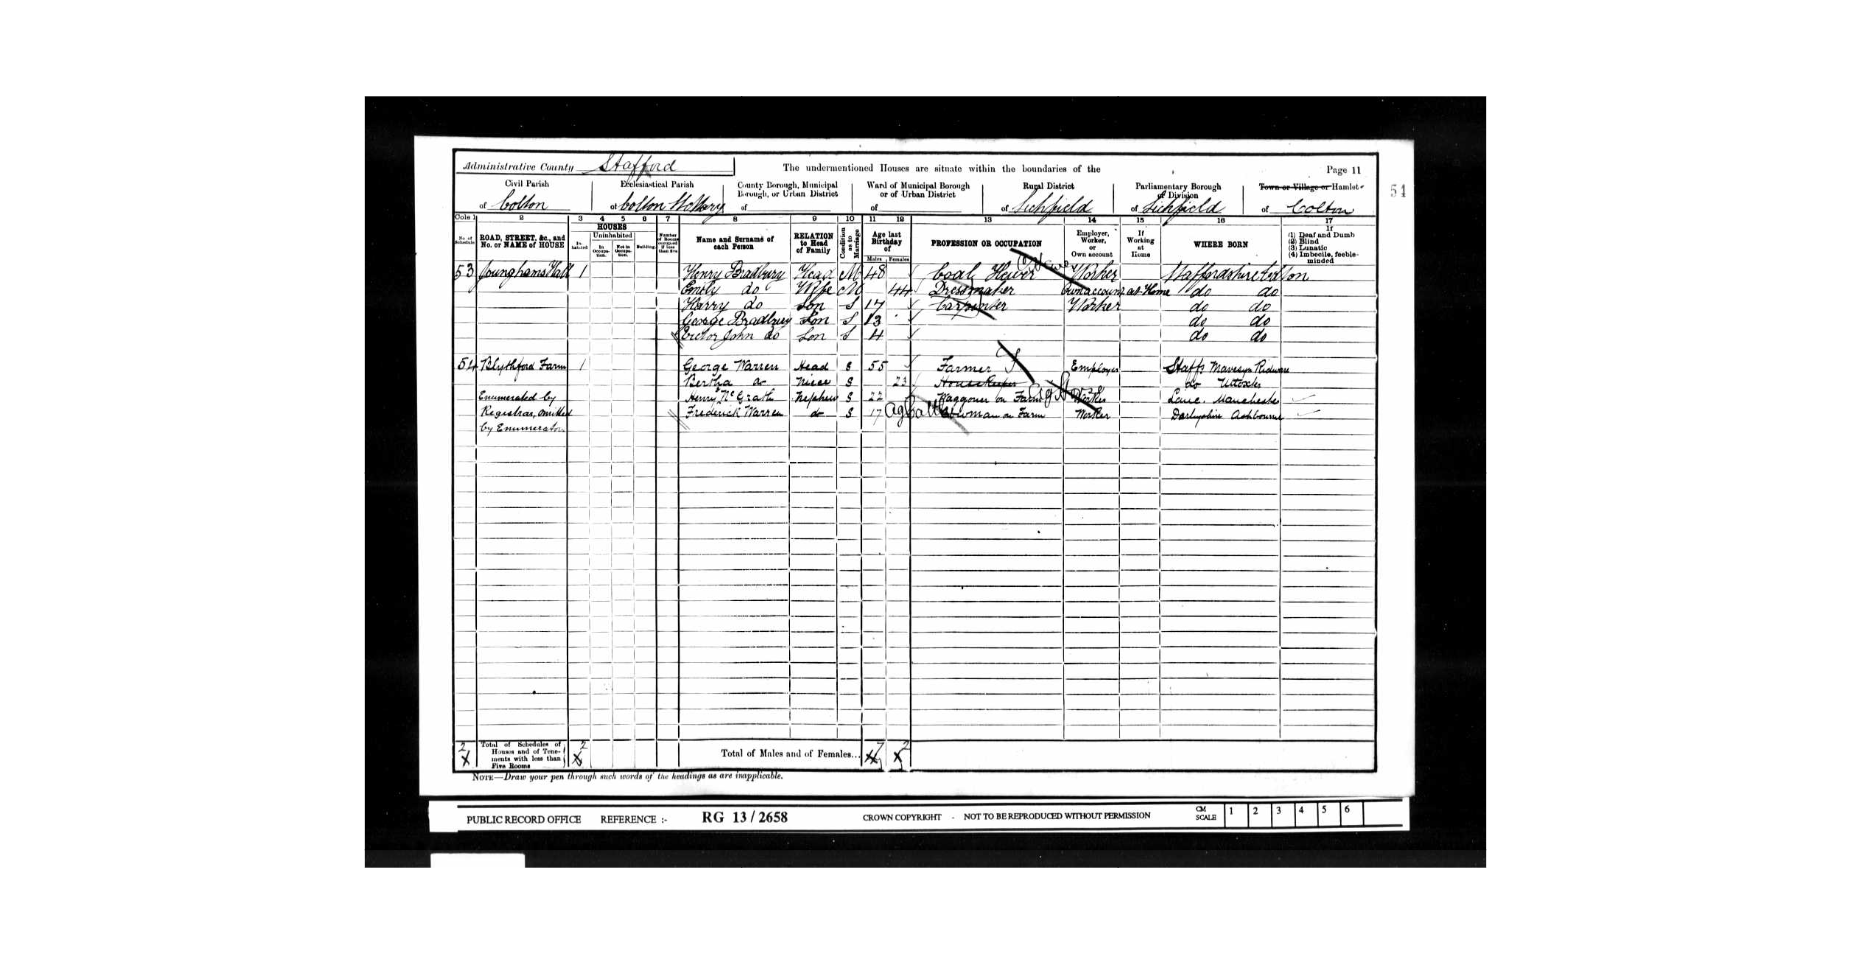 Administrative County Stafford
The undermentioned Houses are situate within the boundaries of the
Page 11
51
Civil Parish of Colton
Ecclesiastical Parish of Colton St Mary
County Borough, Municipal Borough, or Urban District of
Ward of Municipal Borough or of Urban District of
Rural District of Lichfield
Parliamentary Borough or Division of Lichfield
Town or Village or Hamlet of Colton
Cols 1 2 3 4 5 6 7 8 9 10 11 12 13 14 15 16 17
No. of Schedule
ROAD, STREET, &c., and No. or NAME of HOUSE
HOUSES
Inhabited
Uninhabited
In Occupation.
Not in Occupation.
Building.
Name and Surname of each Person
RELATION to Head of Family
Condition as to Marriage
Age last Birthday of
Males Females
PROFESSION OR OCCUPATION
Employer, Worker, or Own account
If Working at Home
WHERE BORN
If (1) Deaf and Dumb (2) Blind (3) Lunatic (4) Imbecile, feeble-minded
53 1 Henry Bradbury Head M 48 Coal Hewer Hewer Worker Staffordshire Colton
Emily do Wife M 44 Dressmaker Own account at Home do do
Harry do Son S 17 Carpenter Worker do do
George Bradbury Son S 13 do do
Victor John do Son S 4 do do
54 Blythford Farm 1 George Warren Head S 55 Farmer Employer Staffs Mavesyn Ridware
Bertha do Niece S 23 Housekeeper do
Enumerated by Henry McGrath Nephew S 22 Waggoner on Farm Worker Lanc. Manchester
Registrar, omitted Frederick Warren do S 17 Cowman on Farm Worker Derbyshire Ashbourne
by Enumerator.
2 Total of Schedules of Houses and of Tenements with less than Five Rooms 2
Total of Males and of Females... 7 2
NOTE—Draw your pen through such words of the headings as are inapplicable.
PUBLIC RECORD OFFICE REFERENCE :- RG 13/2658 CROWN COPYRIGHT - NOT TO BE REPRODUCED WITHOUT PERMISSION
CM SCALE 1 2 3 4 5 6